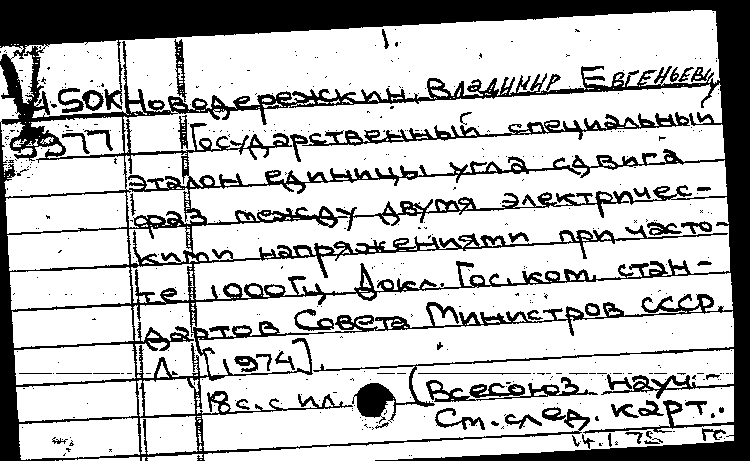 1.
Новодережкин, Владимир Евгеньевич
Государственный специальный
эталон единицы угла сдвига
фаз между двумя электричес-
кими напряжениями при часто-
те 1000Гц. Докл. Гос. ком. стан-
дартов Совета Министров СССР.
Л., [1974].
18 с. с ил. (Всесоюз. науч.-
См. след. карт..
14.1.75